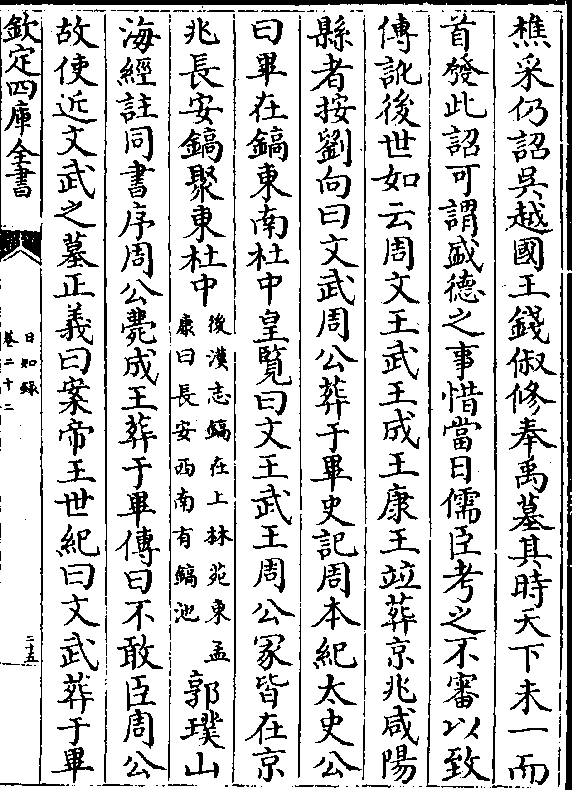 樵采仍詔吳越國王錢俶修奉禹墓其時天下未一而
首發此詔可謂盛德之事惜當日儒臣考之不審以致
傳訛後世如云周文王武王成王康王並葬京兆咸陽
縣者按劉向曰文武周公葬于畢史記周本紀太史公
曰畢在鎬東南杜中皇覽曰文王武王周公冢皆在京
兆長安鎬聚東杜中後漢志鎬在上林苑東孟康曰長安西南有鎬池郭璞山
海經註同書序周公薨成王葬于畢傳曰不敢臣周公
故使近文武之墓正義曰案帝王世紀曰文武葬于畢
欽定四庫全書
日知錄
卷二十二
二五